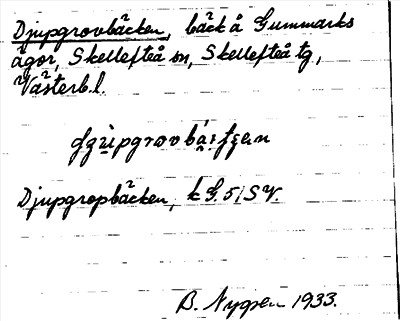 Djupgrovbäcken, bäck å Gummarks
ägor, Skellefteå sn, Skellefteå tg,
Västerb.l.
Djupgropbäcken, k G. 5 i SV.
B. Nygren 1933.